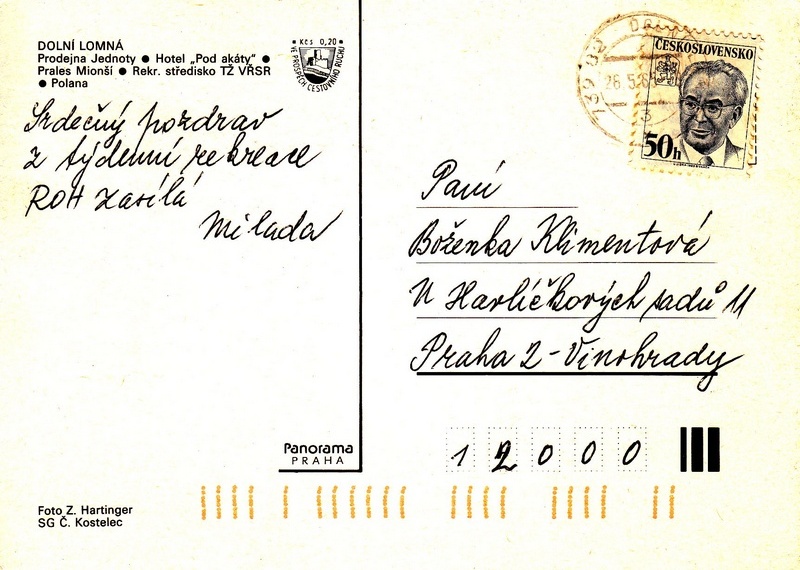 DOLNÍ LOMNÁ
Prodejna Jednoty ● Hotel „Pod akáty" ●
Prales Mionší ● Rekr. středisko TŽ VŘSR
● Polana
Kčs 0,20
VE PROSPĚCH CESTOVNÍHO RUCHU
Srdečný pozdrav
z týdenní rekreace
ROH zasílá
Milada
739 02
26.5.8
ČESKOSLOVENSKO
50h
Paní
Boženka Klimentová
U Havlíčkových sadů 11
Praha 2-Vinohrady
12000
Panorama
PRAHA
Foto Z. Hartinger
SG Č. Kostelec